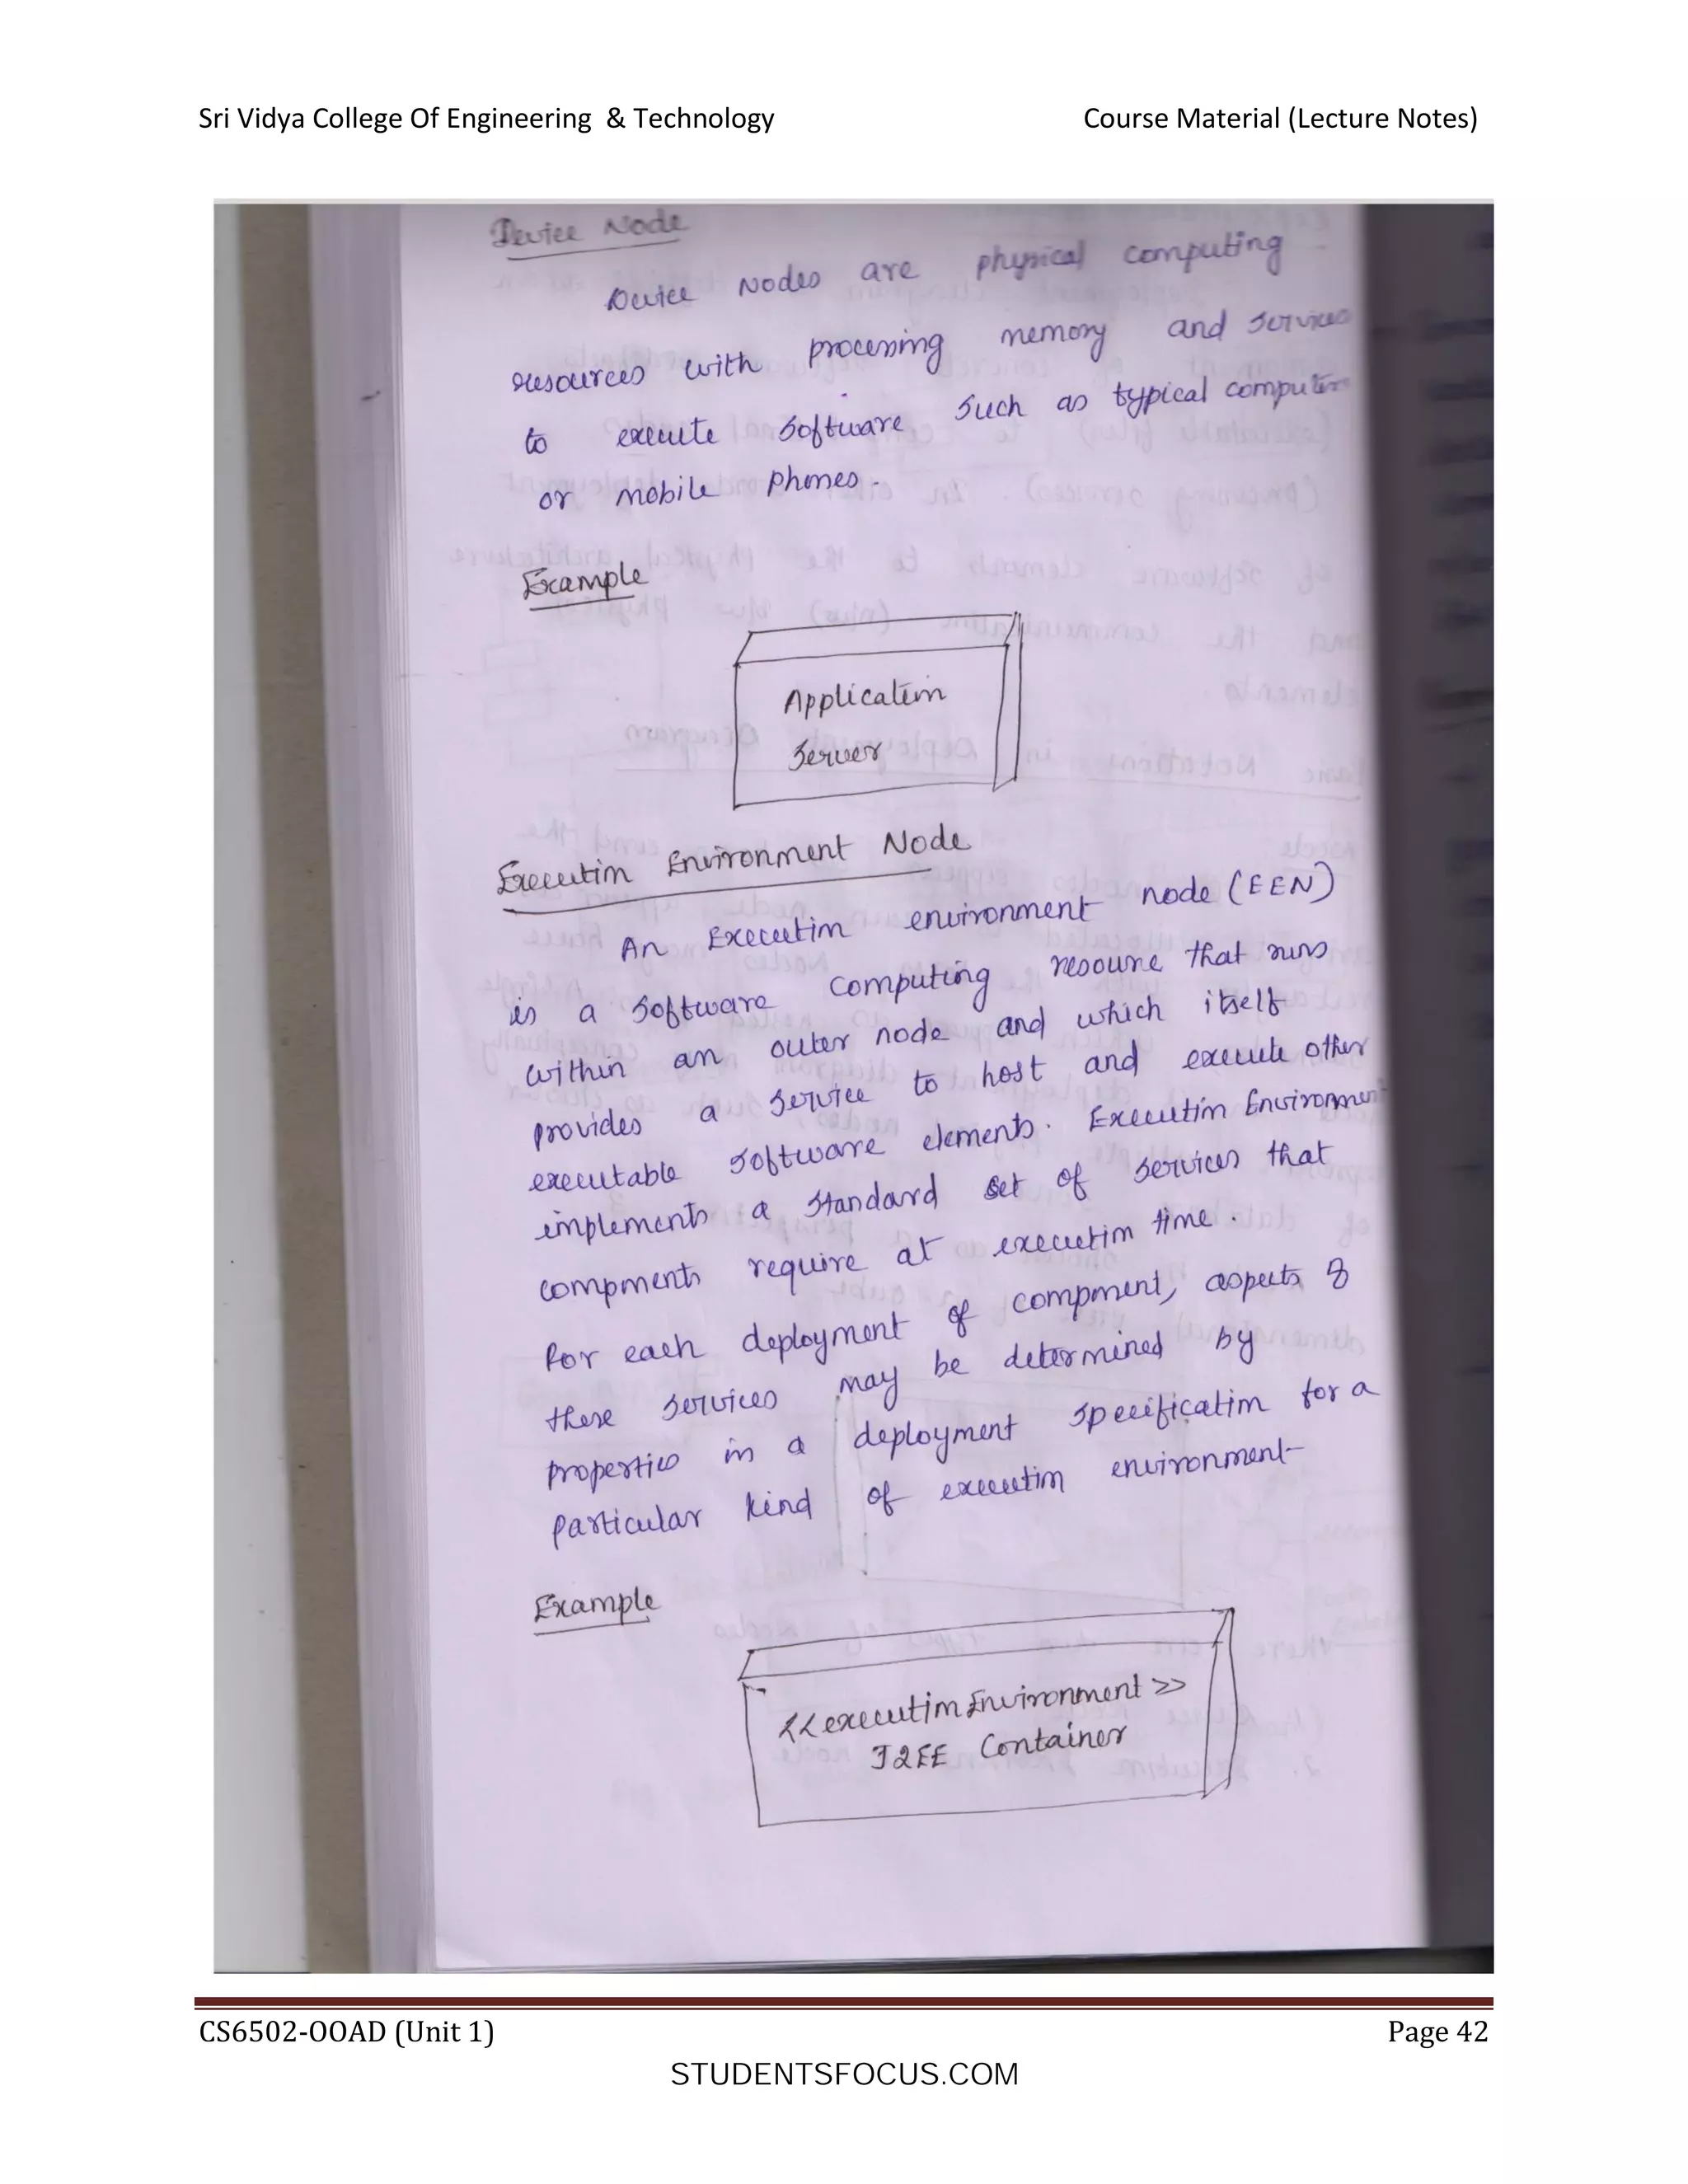 Sri Vidya College Of Engineering & Technology Course Material (Lecture Notes)
Device Node
Device Nodes are physical computing
resources with processing memory and services
to execute software such as typical computer
or mobile phones.
Example
Application
Server
Execution Environment Node
An Execution environment node (EEN)
is a software computing resource that runs
within an outer node and which itself
provides a service to host and execute other
executable software elements. Execution Environment
implements a standard set of services that
components require at execution time.
For each deployment of component, aspects of
these services may be determined by
properties in a deployment specification for a
particular kind of execution environment
Example
<<execution Environment>>
J2EE Container
CS6502-OOAD (Unit 1) Page 42
STUDENTSFOCUS.COM